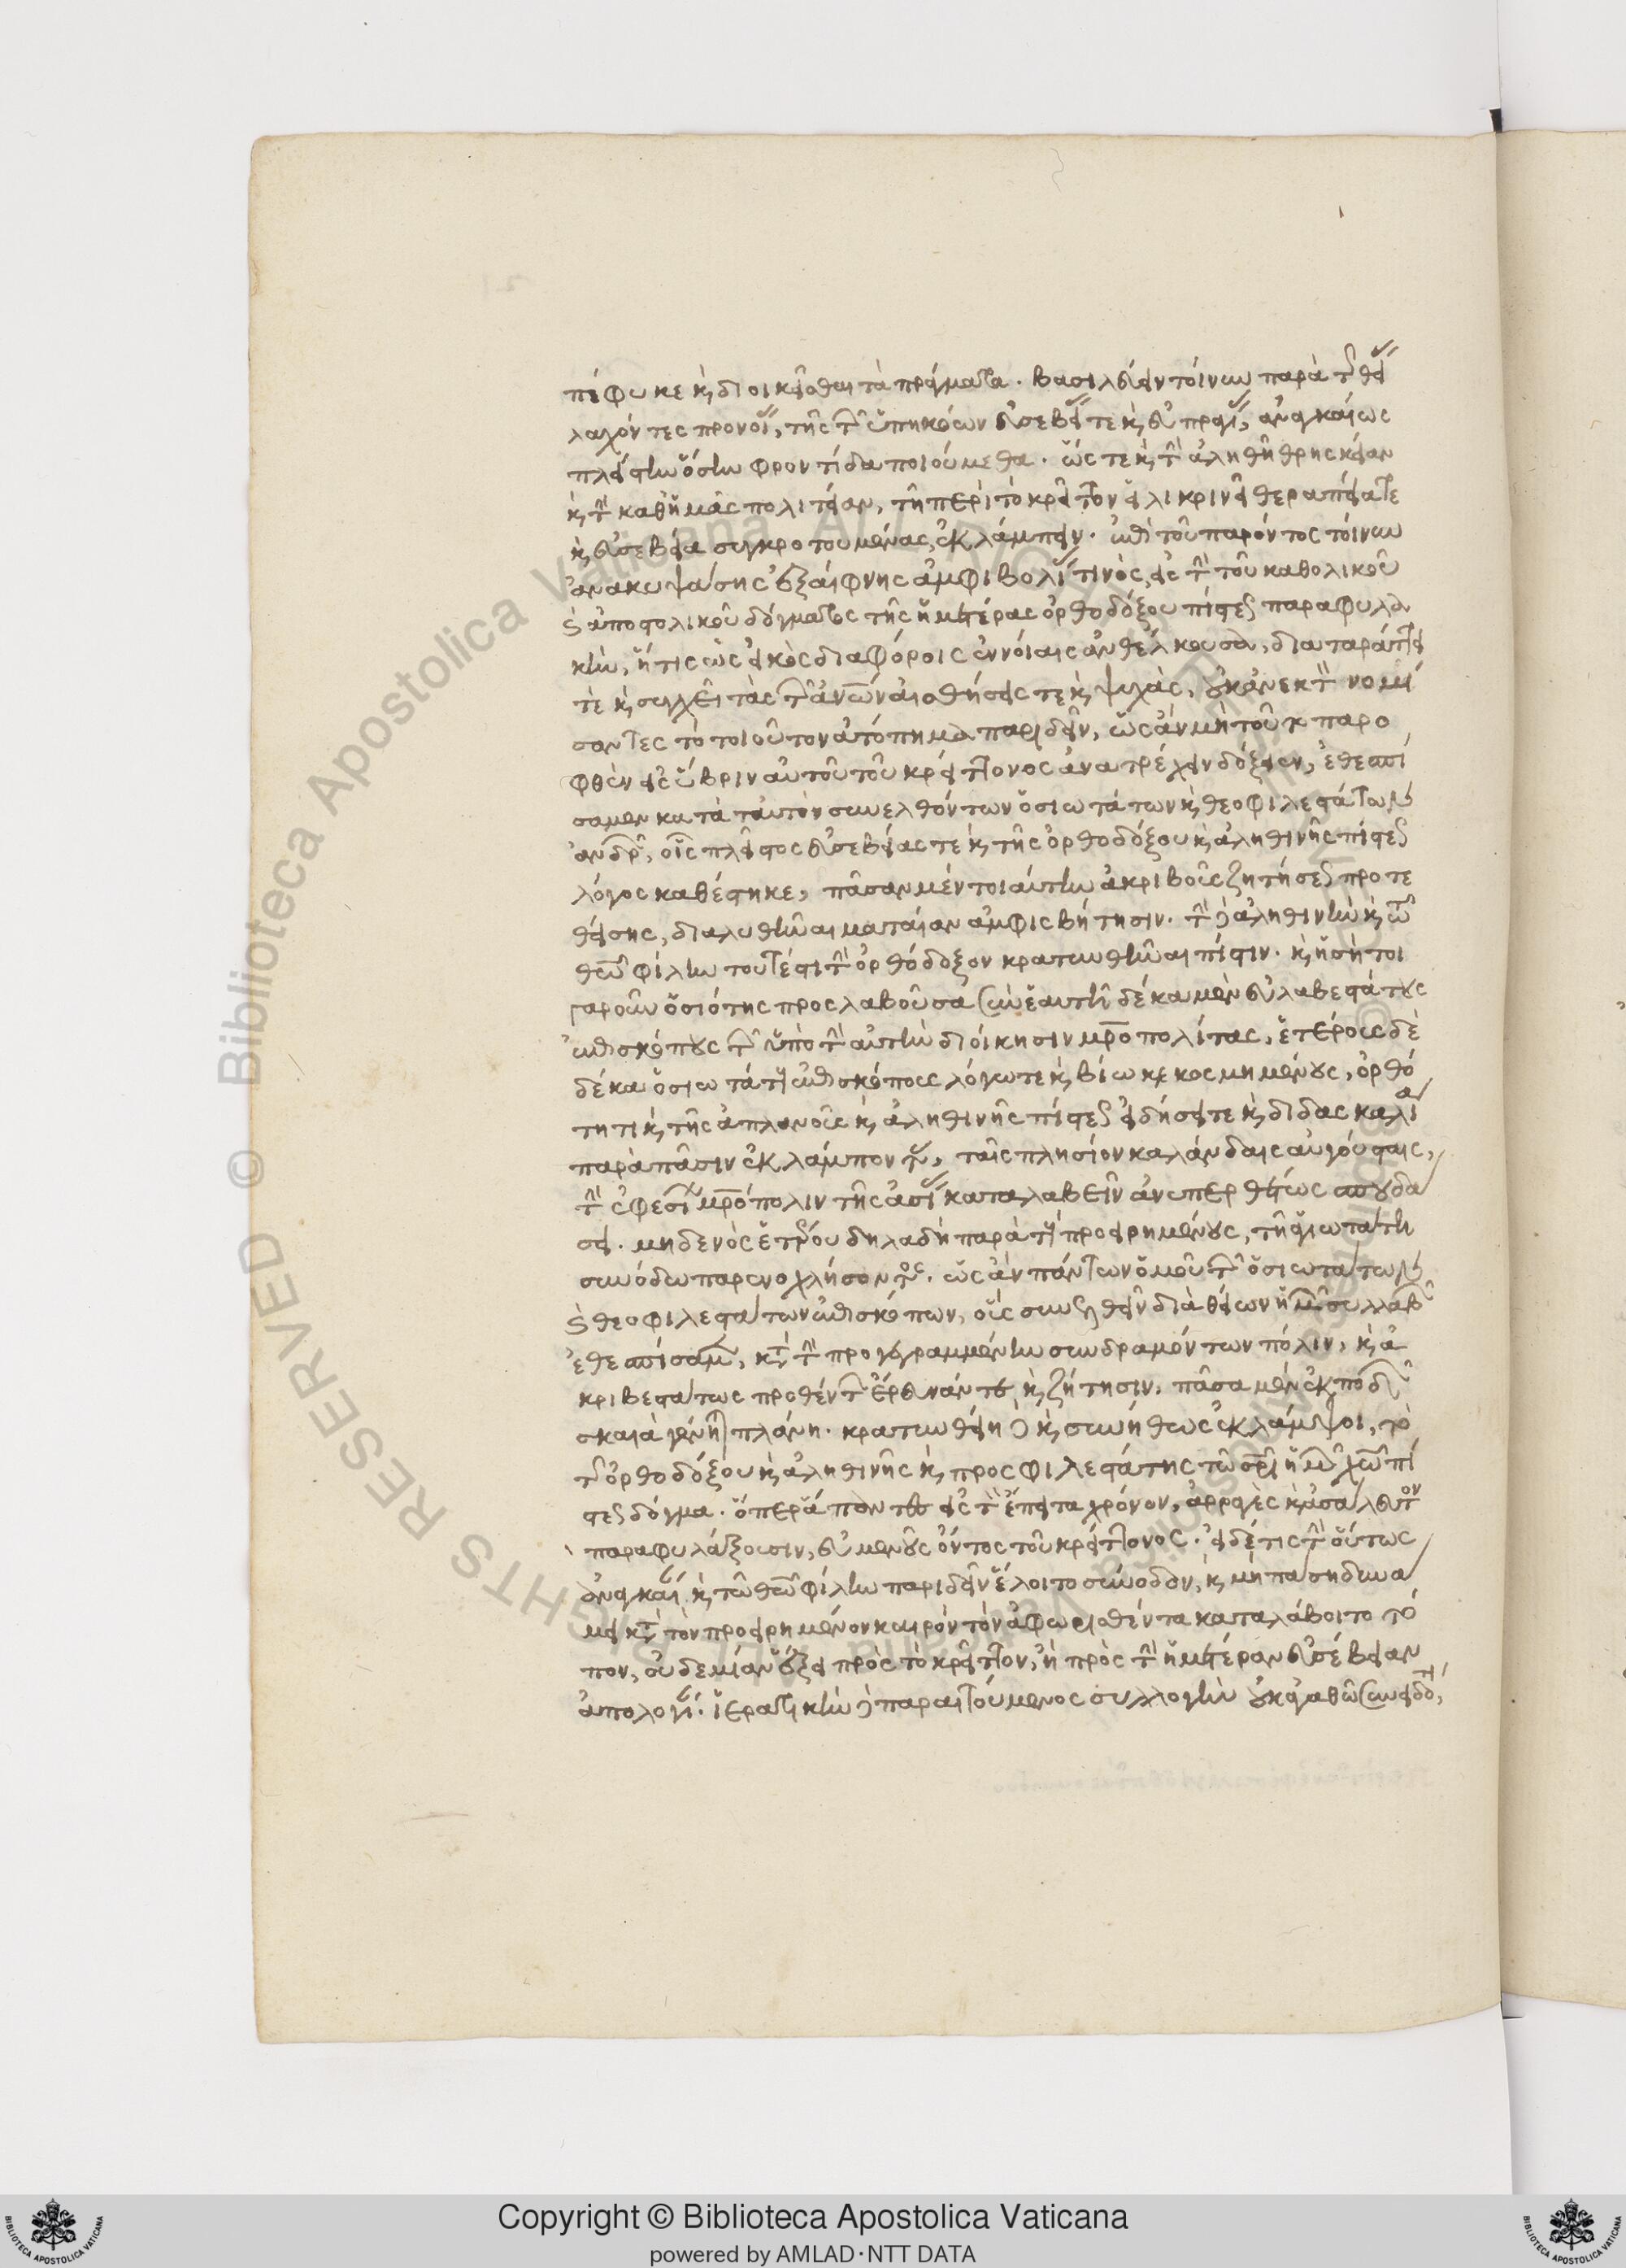 πέφυκε κ διοικεῖσθαι τὰ πράγματα. βασιλεύειν τοίνυν παρὰ τῆς θεί
λαχόντες προνοί, τῆς τῶν ὑπηκόων εὐσεβεί τε κ εὐπραγί, ἀναγκαίως
πλείστην ὅσην φροντίδα ποιούμεθα. ὥς τε κ τὴν ἀληθῆ θρησκείαν
κ τὴν καθ' ἡμᾶς πολιτείαν, τῇ περὶ τὸ κρεῖττον εἰλικρινεῖ θεραπείᾳ τε
κ εὐσεβείᾳ συγκροτουμένας, ἐκλάμπειν. ἐπὶ τοῦ παρόντος τοίνυν
ἀνακυψάσης ἐξαίφνης ἀμφιβολί τινὸς, εἰς τὴν τοῦ καθολικοῦ
κ ἀποστολικοῦ δόγματος τῆς ἡμετέρας ὀρθοδόξου πίστεως παραφυλα
κὴν, ἥτις ὡς εἰκὸς διαφόροις ἐννοίαις ἀνθέλκουσα, διαταράττει
τὲ κ συγχεῖ τὰς τῶν ἀνων αἰσθήσεις τε κ ψυχὰς, οὐκ ἀνεκτὸν νομί
σαντες τὸ τοιοῦτον ἀτόπημα παριδεῖν, ὡς ἂν μὴ τοῦτο παρο
φθὲν εἰς ὕβριν αὐτοῦ τοῦ κρείττονος ἀνατρέχειν δόξειεν, ἐθεσπί
σαμεν κατὰ ταυτὸν συνελθόντων ὁσιωτάτων κ θεοφιλεστάτων
ἀνδρῶν, οἷς πλεῖστος εὐσεβείας τε κ τῆς ὀρθοδόξου κ ἀληθινῆς πίστεως
λόγος καθέστηκε, πᾶσαν μέντοι αὐτὴν ἀκριβοῖς ζητήσεως προτε
θείσης, διαλυθῆναι ματαίαν ἀμφισβήτησιν. τὴν δὲ ἀληθινὴν κ τῶ
θεῶ φίλην τουτέστι τὴν ὀρθόδοξον κρατυνθῆναι πίστιν. κ ἡ σή τοι
γαροῦν ὁσιότης προσλαβοῦσα σὺν ἑαυτῇ δέκα μὲν εὐλαβεστάτους
ἐπισκόπους τῶν ὑπὸ τὴν αὐτὴν διοίκησιν μροπολίτας, ἑτέροις δὲ
δέκα ὁσιωτάτους ἐπισκόποις λόγω τε κ βίω κεκοσμημένους, ὀρθό
τητι κ τῆς ἀπλανοῖς κ ἀληθινῆς πίστεως εἰδήσει τε κ διδασκαλία
παρὰ πᾶσιν ἐκλάμποντας, ταῖς πλησίον καλάνδαις αὐγούσταις,
τὴν ἐφεσί μρόπολιν τῆς ἀσί καταλαβεῖν ἀνυπερθέτως σπουδα
σει. μηδενὸς ἑτέρου δηλαδὴ παρὰ τοὺς προειρημένους, τῇ ἁγιωτάτῃ
συνόδω παρενοχλήσοντος. ὡς ἂν πάντων ὁμοῦ τῶν ὁσιωτάτων
κ θεοφιλεστάτων ἐπισκόπων, οὓς συνελθεῖν διὰ θείων ἡμῶν συλλαβῶν
ἐθεσπίσαμεν, κατὰ τὴν προγεγραμμένην συνδραμόντων πόλιν, κ ἀ
κριβεστάτως προθέντων ἔρευνάν τε κ ζήτησιν, πᾶσα μὲν ἐκποδὼν
σκαιὰ γένηται πλάνη. κρατυνθείη δὲ κ συνήθως ἐκλάμψοι, τὸ
τῆς ὀρθοδόξου κ ἀληθινῆς κ προσφιλεστάτης τῶ σρι ἡμῶν χω πί
στεως δόγμα. ὅπερ ἅπαντες εἰς τὸν ἔπειτα χρόνον, ἀρραγὲς κ ἀσάλευτον
παραφυλάξοισιν, εὐμενοῦς ὄντος τοῦ κρείττονος. εἰ δέ τις τὴν οὕτως
ἀναγκαί κ τῶ θεῶ φίλην παριδεῖν ἕλοιτο σύνοδον, κ μὴ πάσῃ δυνά
μει κατὰ τὸν προειρημένον καιρὸν τὸν ἀφωρισθέντα καταλάβοιτο τό
πον, οὐδεμίαν ἕξει πρὸς τὸ κρεῖττον, ἢ πρὸς τὴν ἡμετέραν εὐσέβειαν
ἀπολογί. ἱερατικὴν δὲ παραιτούμενος συλλογὴν οὐκ ἀγαθῶ συνειδό,